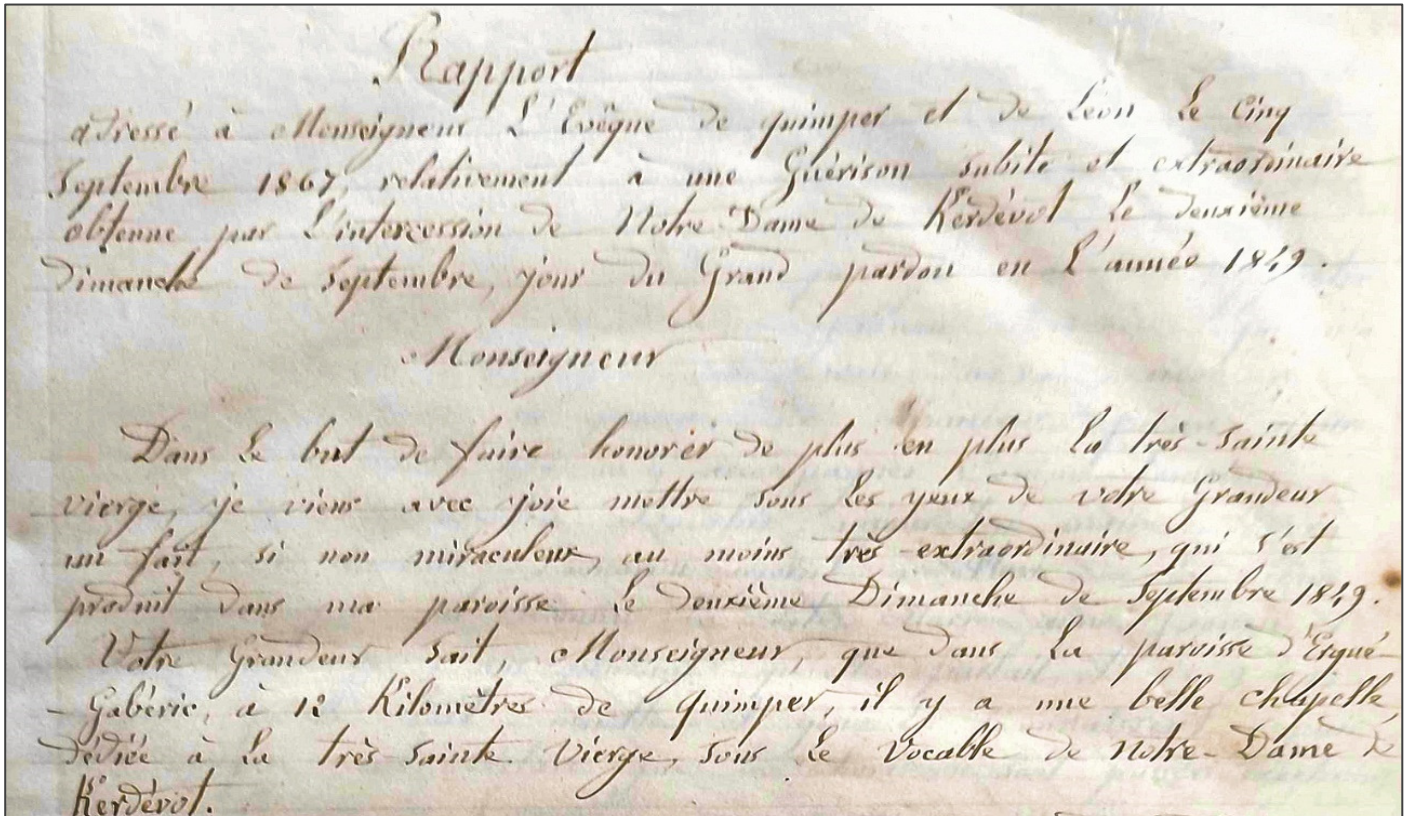 Rapport
adressé à Monseigneur L'Evêque de quimper et de Léon Le Cinq
Septembre 1867, relativement à une Guérison subite et extraordinaire
obtenue par L'intercession de Notre-Dame de Kerdévot Le deuxième
dimanche de Septembre, jour du Grand pardon en L'année 1849.
Monseigneur
Dans Le but de faire honorer de plus en plus La très-Sainte
vierge, je viens avec joie mettre sous Les yeux de votre Grandeur
un fait, si non miraculeux, au moins très-extraordinaire, qui s'est
produit dans ma paroisse Le deuxième Dimanche de Septembre 1849.
Votre Grandeur Sait, Monseigneur, que dans La paroisse d'Ergué-
-Gabéric, à 12 Kilomètres de quimper, il y a une belle chapelle,
dédiée à La très-Sainte Vierge, sous Le Vocable de Notre-Dame de
Kerdévot.